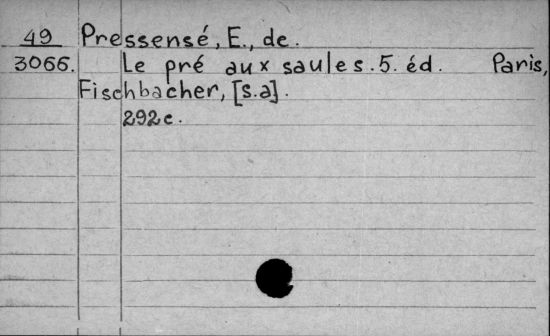 49 Pressensé, E., de.
3066. Le pré aux saules. 5. éd. Paris,
Fischbacher, [s.a].
292c.